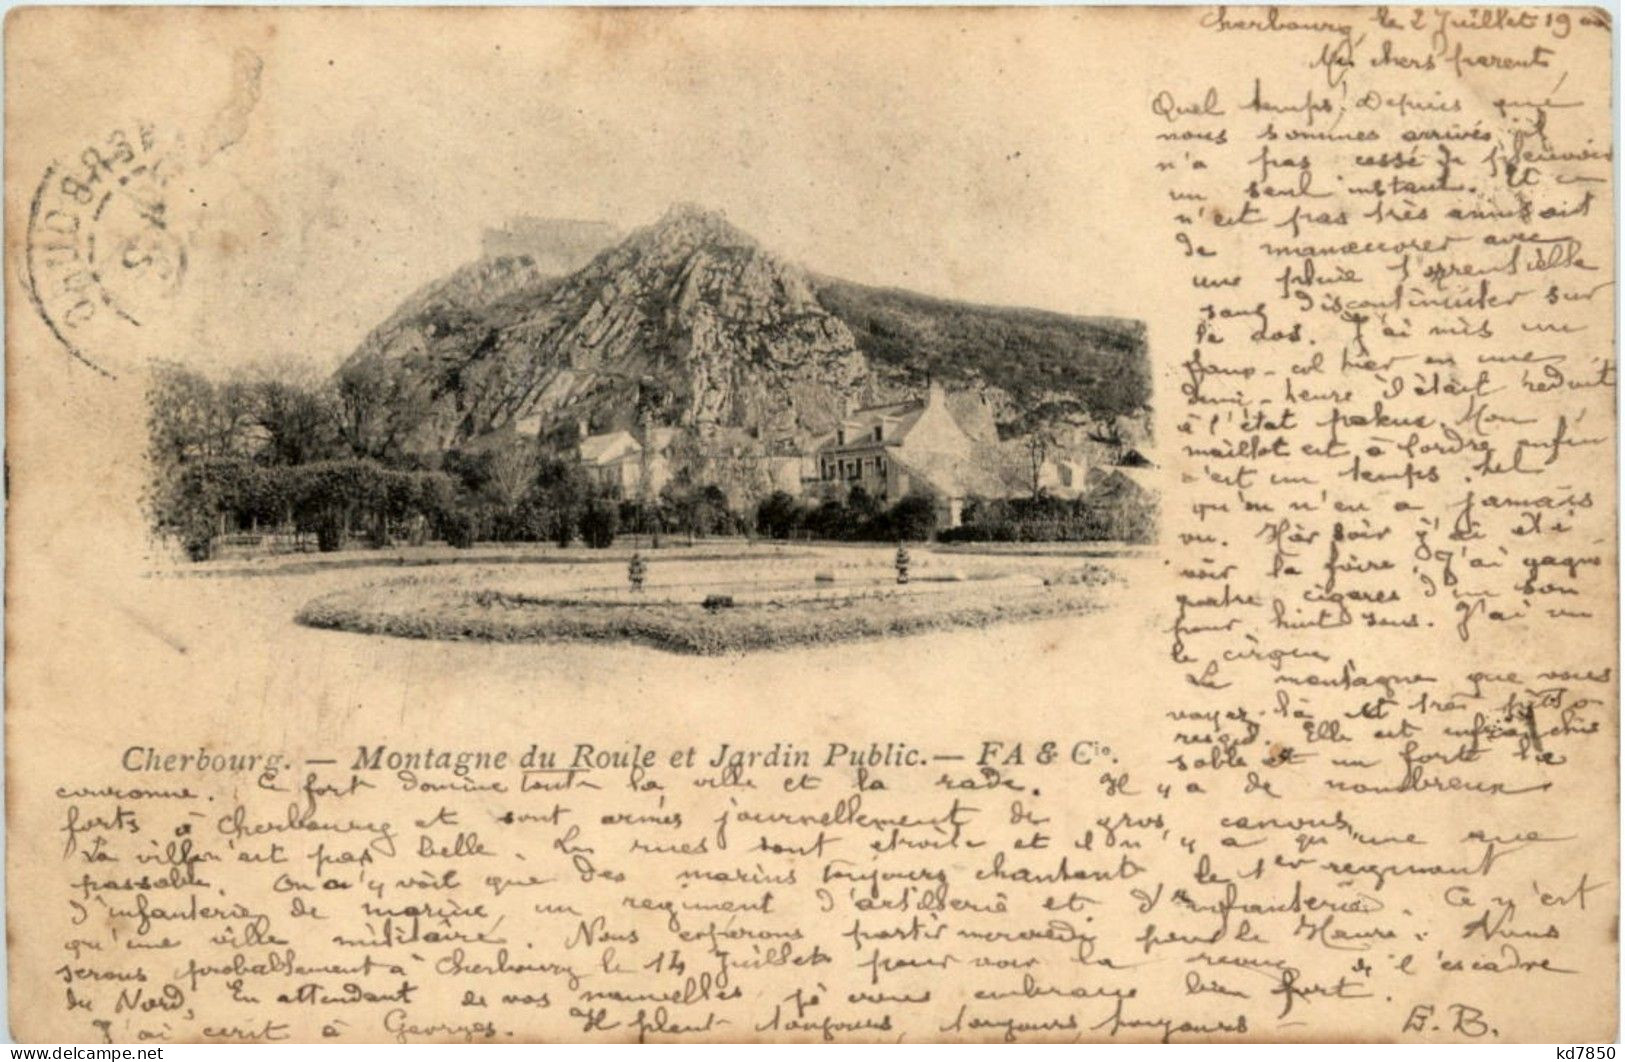 Cherbourg, le 2 Juillet 1900
Mes chers parents,
Quel temps! Depuis que
nous sommes arrivés, il
n'a pas cessé de pleuvoir
un seul instant. Et ce
n'est pas très amusant
de manœuvrer avec
une pluie torrentielle
sans discontinuer sur
le dos. J'ai mis un
faux-col hier en une
demi-heure il était réduit
à l'état Mon
maillot est à tordre, enfin
c'est un temps tel
qu'on n'en a jamais
vu. Hier soir j'ai été
voir la foire. J'ai gagné
quatre cigares d'un son
pour huit sous. J'ai vu
le cirque
La montagne que vous
voyez-là est très
Elle est
et un fort la
Cherbourg. — Montagne du Roule et Jardin Public. — FA & Cie.
couronne. Ce fort domine toute la ville et la rade. Il y a de nombreux
forts à Cherbourg et sont armés journellement de gros canons.
La ville n'est pas belle. Les rues sont étroites et il n'y a qu'une que
passable. On n'y voit que des marins toujours chantant, le 1er régiment
d'infanterie de marine, un régiment d'artillerie et d'infanterie. Ce n'est
qu'une ville militaire. Nous espérons partir mercredi pour le Havre. Nous
serons probablement à Cherbourg le 14 Juillet pour voir la revue de l'escadre
du Nord. En attendant de vos nouvelles, je vous embrasse bien fort.
J'ai écrit à Georges. Il pleut toujours, toujours, toujours — E. B.
CHERBOURG
kd7850